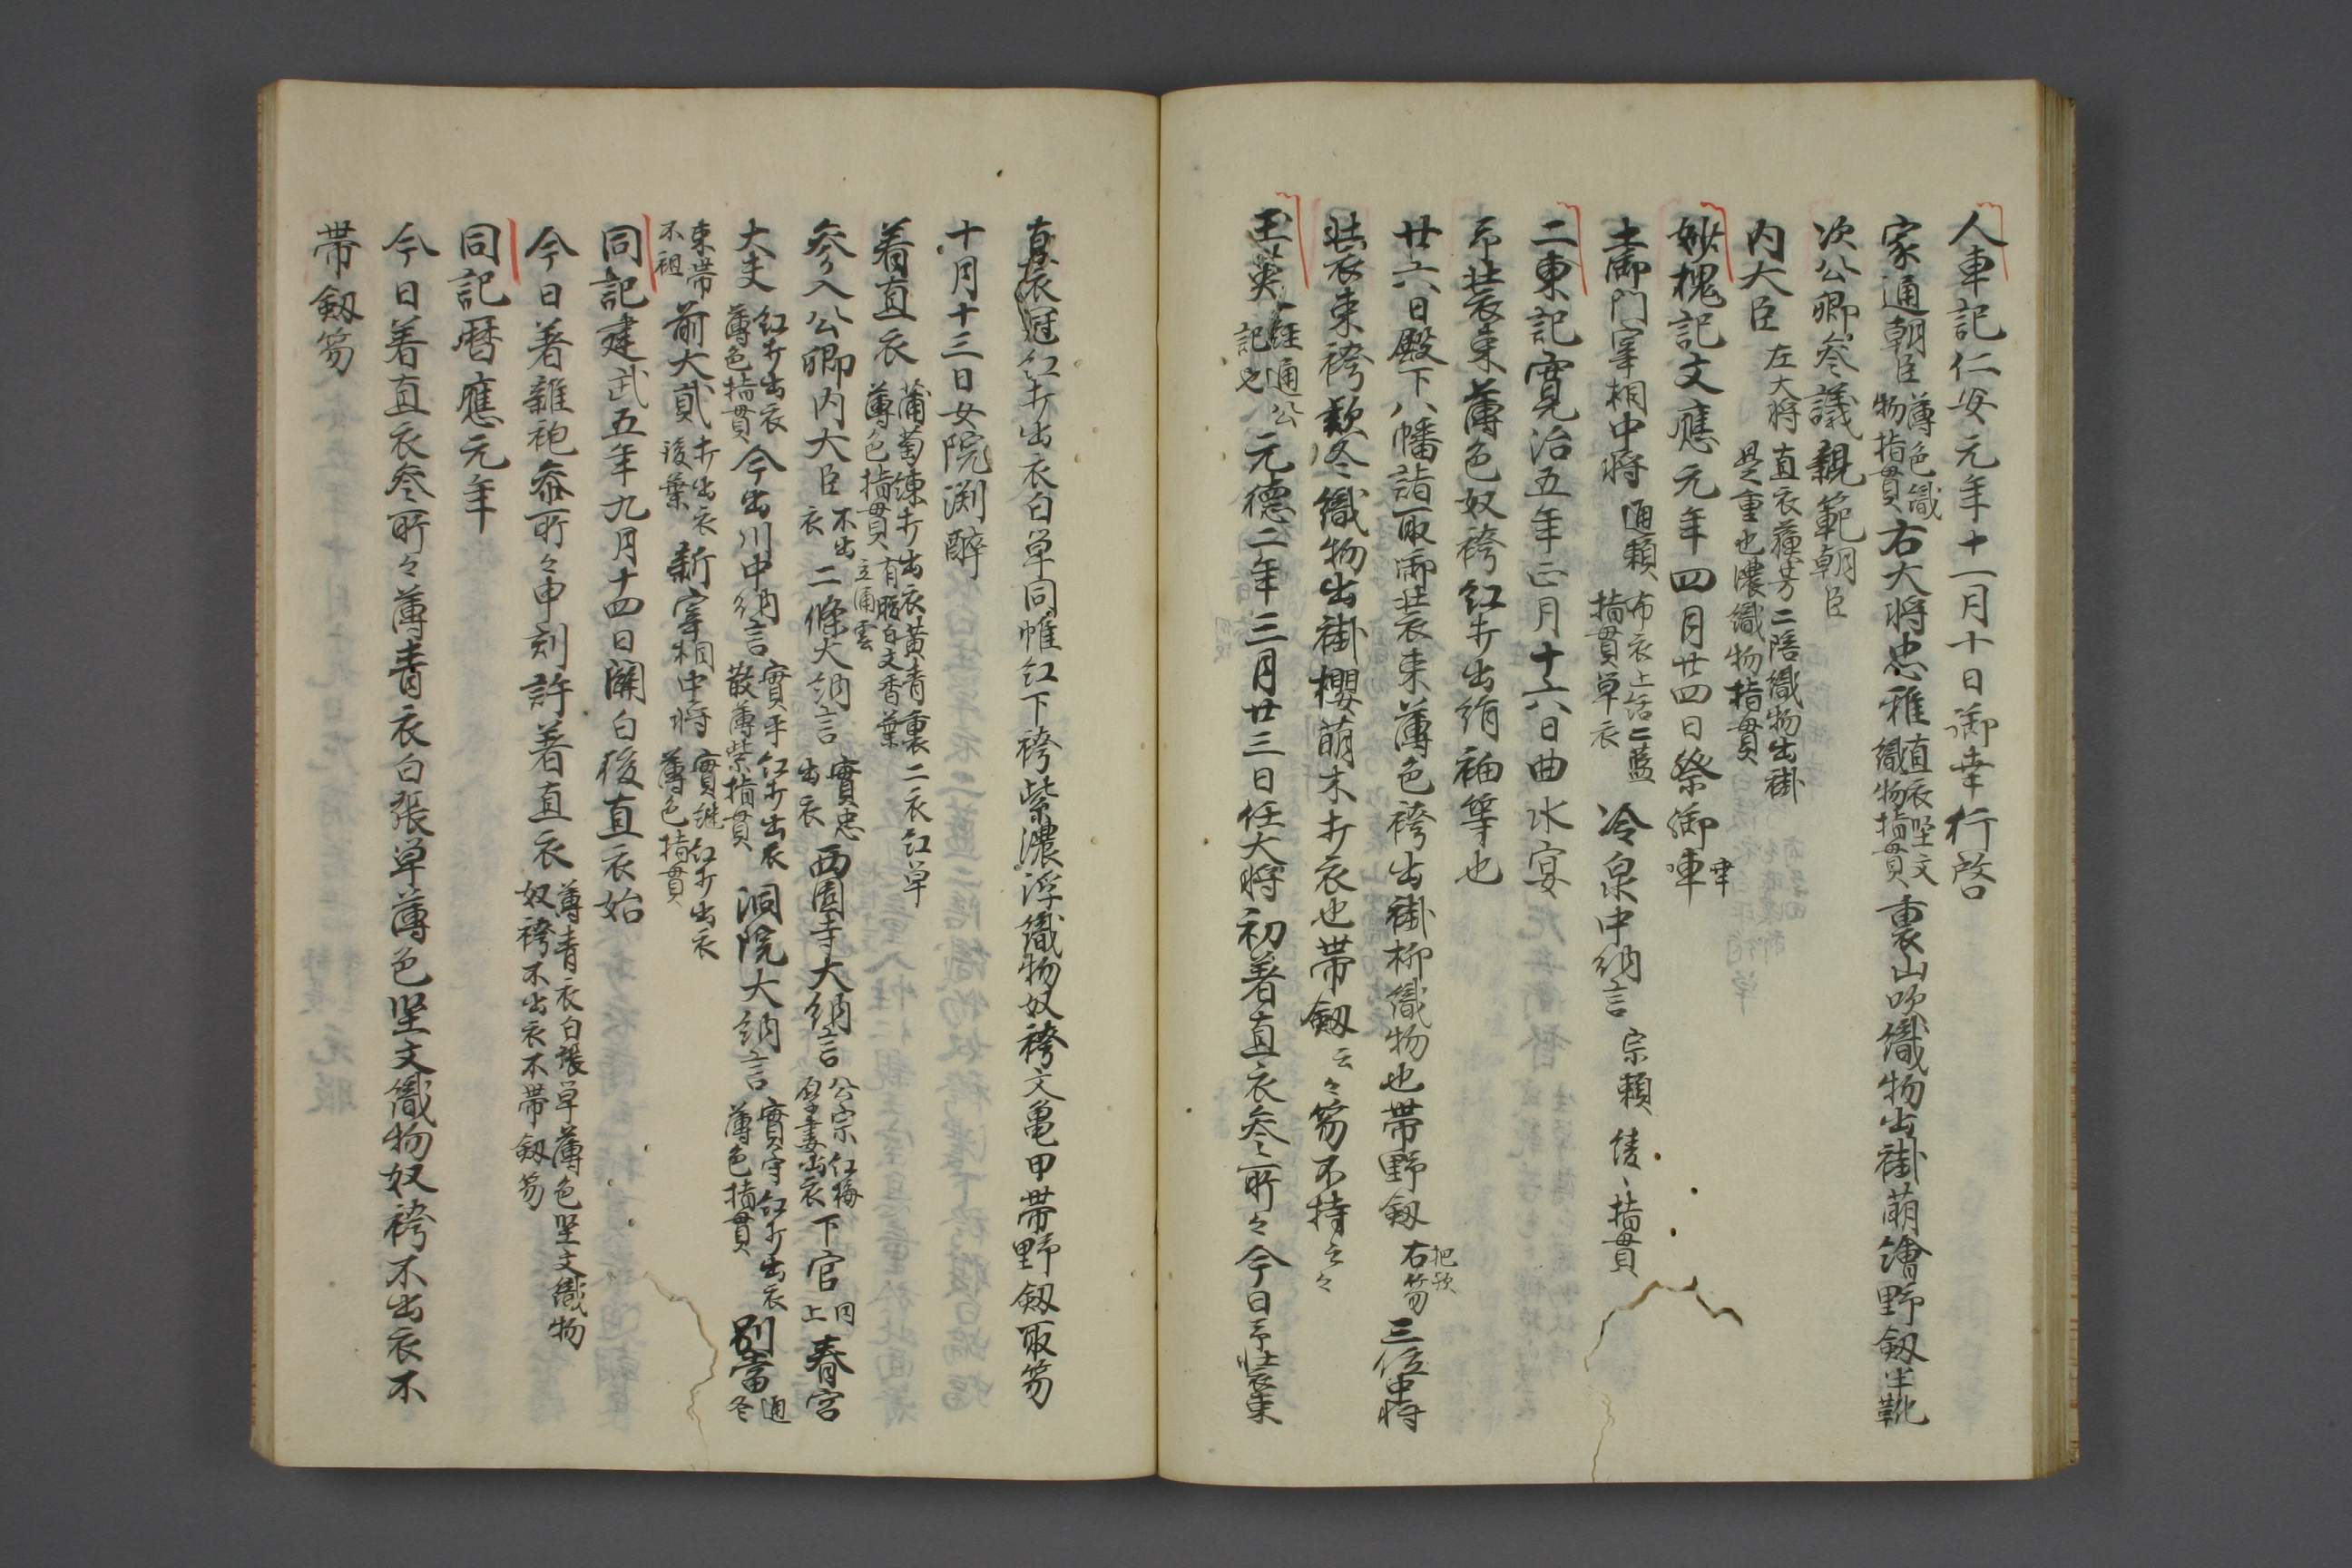 人車記仁安元年十一月十日御幸行啓
家通朝臣薄色織物指貫右大将忠雅直衣堅文織物指貫裏山吹織物出褂萌繪野釼半靴
次公卿参議親範朝臣
内大臣左大将直衣蘓芳二陪織物出褂是重也濃織物指貫
妙槐記文應元年四月廿四日祭御幸
土御門宰相中将通頼布衣上結二藍指貫単衣冷泉中納言宗頼綾指貫
二東記寛治五年正月十六日曲水宴
予装束薄色奴袴紅打出絹袖等也
廿六日殿下八幡詣取御装束薄色袴出褂柳織物也帯野釼把笏右笏三位中将
装束袴款冬織物出褂櫻萌木打衣也帯釼云々笏不持云々
玉英一経通公記也元德二年三月廿三日任大将初着直衣参所々今日予装束
直衣冠紅打出衣白単同帷紅下袴紫濃浮織物奴袴文亀甲帯野釼取笏
十月十三日女院渕酔
着直衣蒲萄練打出衣黄青裏二衣紅単薄色指貫有腋白文香葉立涌雲
参入公卿内大臣不出衣二條大納言實忠出衣西園寺大納言公宗紅梅出衣下官同上春宮
大夫紅打出衣薄色指貫今出川中納言實平紅打出衣散薄紫指貫洞院大納言實守紅打出衣薄色指貫別當通冬
束帯不袒前大貳打出衣後葉新宰相中将實継紅打出衣薄色指貫
同記建武五年九月十四日關白後直衣始
今日着雜袍参所々申刻許着直衣薄青衣白張単薄色堅文織物奴袴不出衣不帯釼笏
同記暦應元年
今日着直衣参所々薄青衣白張単薄色堅文織物奴袴不出衣不
帯釼笏